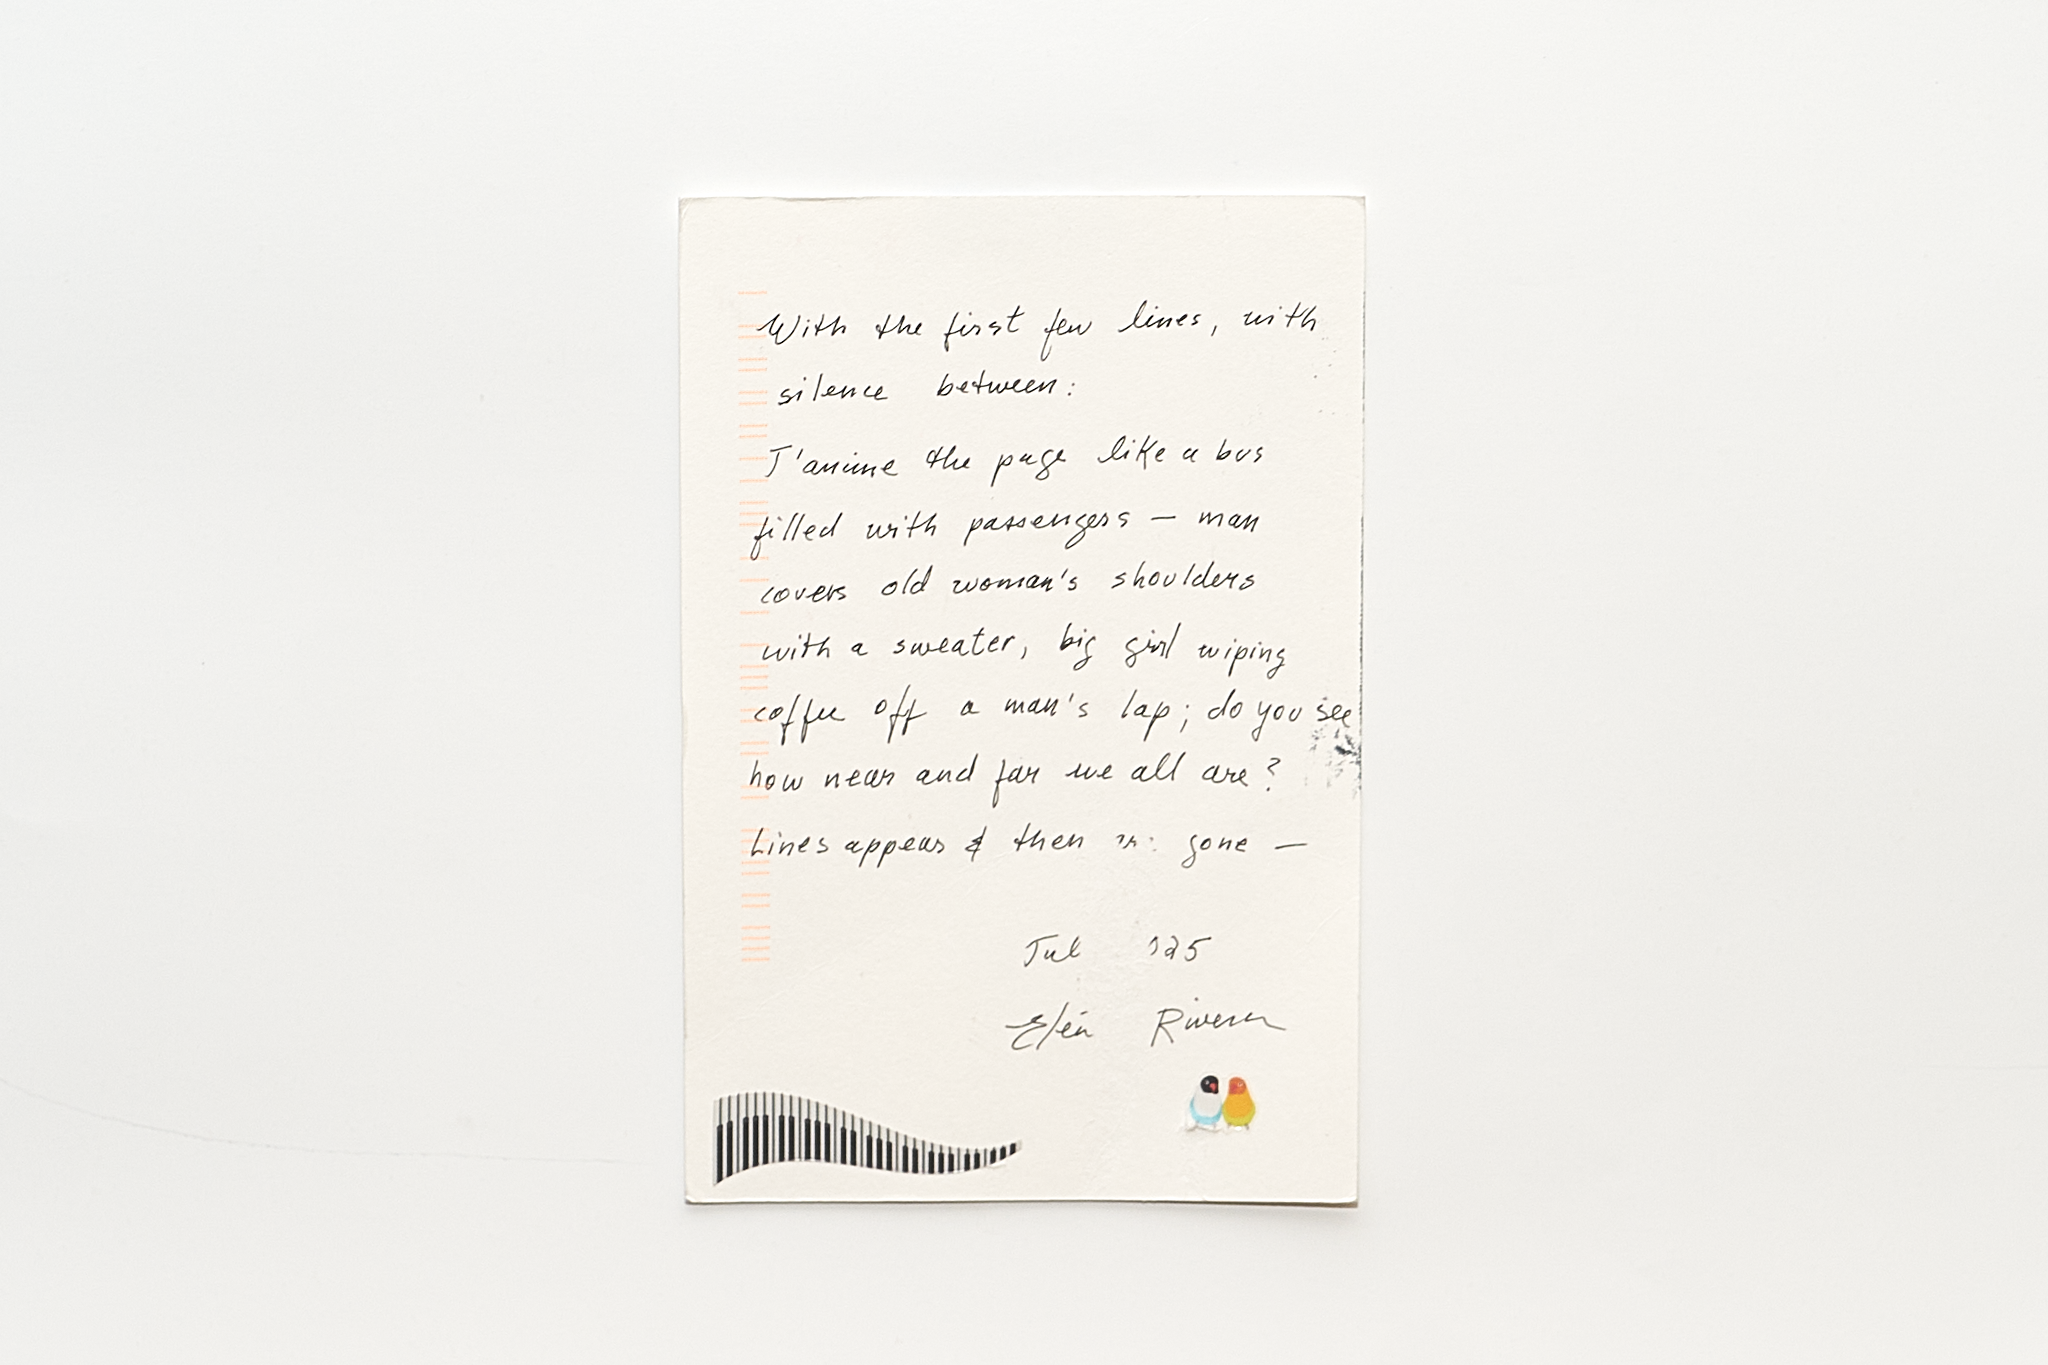 With the first few lines, with
silence between:
J'anime the page like a bus
filled with passengers — man
covers old woman's shoulders
with a sweater, big girl wiping
coffee off a man's lap; do you see
how near and far we all are?
Lines appear & then gone —
Jul
Rivera